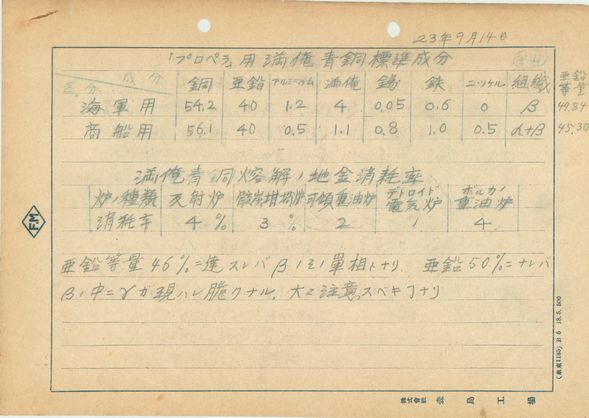 23年9月14日
「プロペラ」用満俺青銅標準成分
区分 成分 銅 亜鉛 アルミニウム 満俺 錫 鉄 ニッケル 組織 亜鉛等量
海軍用 54.2 40 1.2 4 0.05 0.6 0 β 49.84
商船用 56.1 40 0.5 1.1 0.8 1.0 0.5 α+β 45.30
満俺青銅熔解ノ地金消耗率
炉ノ種類 反射炉 骸炭坩堝炉 可傾重油炉 デトロイド電気炉 ボルカノ重油炉
消耗率 4% 3% 2 1 4
亜鉛等量46%ニ達スレバβノミノ単相トナリ 亜鉛50%ニナレバ
βノ中ニγガ現ハレ脆クナル、大ニ注意スベキコトナリ
FM
株式会社 島工場